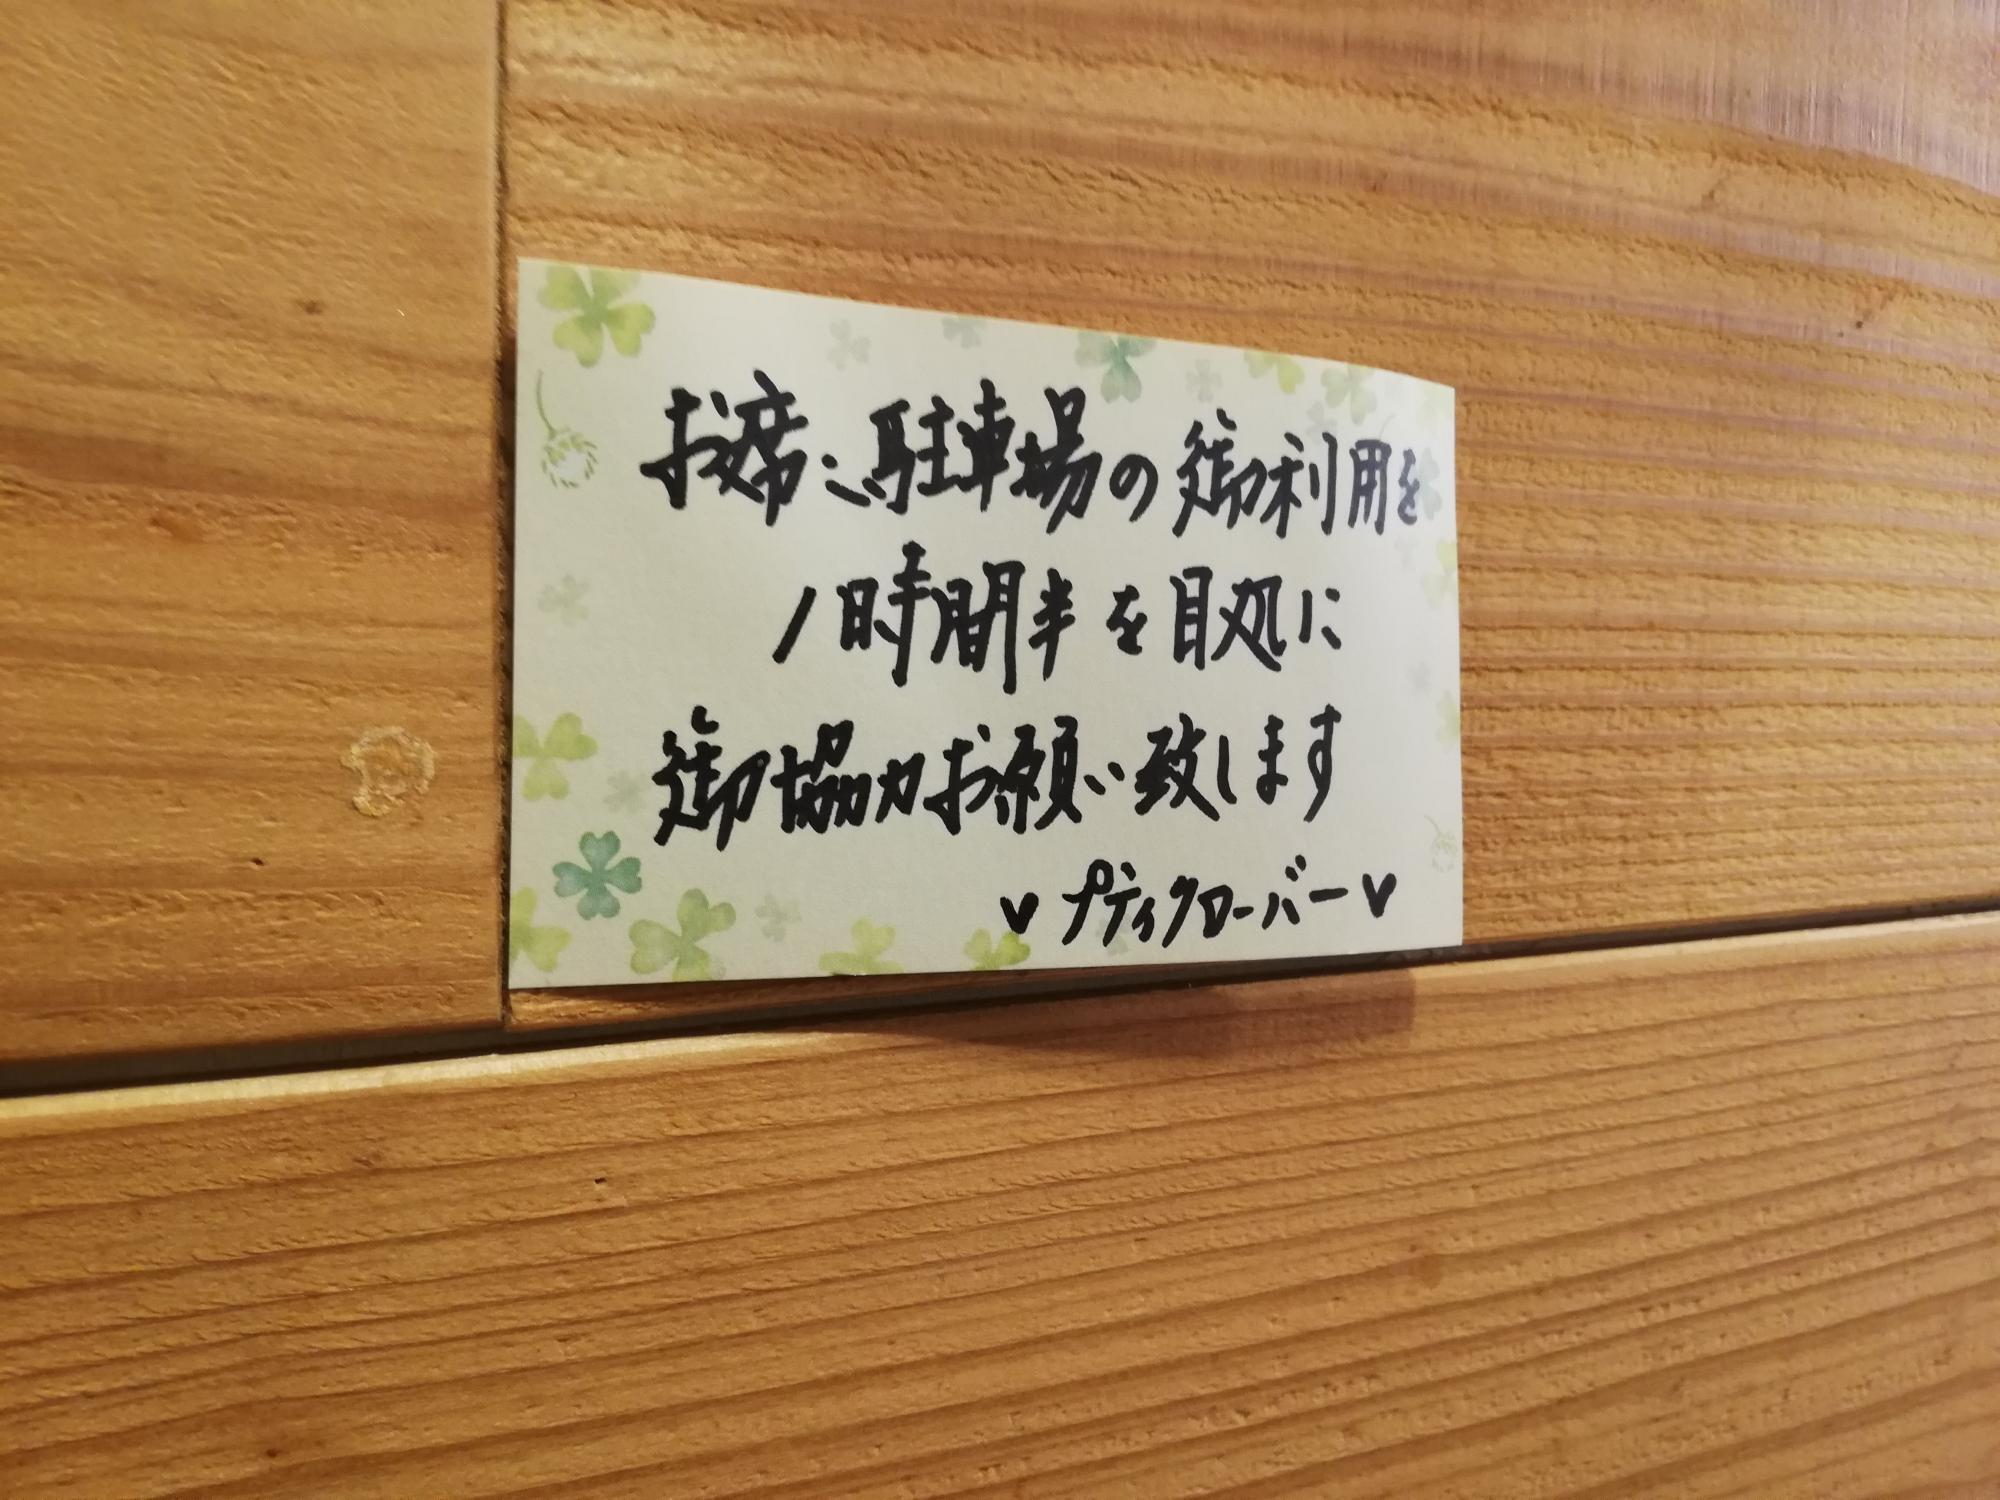 お席、駐車場の御利用を
1時間半を目処に
御協力お願い致します
♥プティクローバー♥